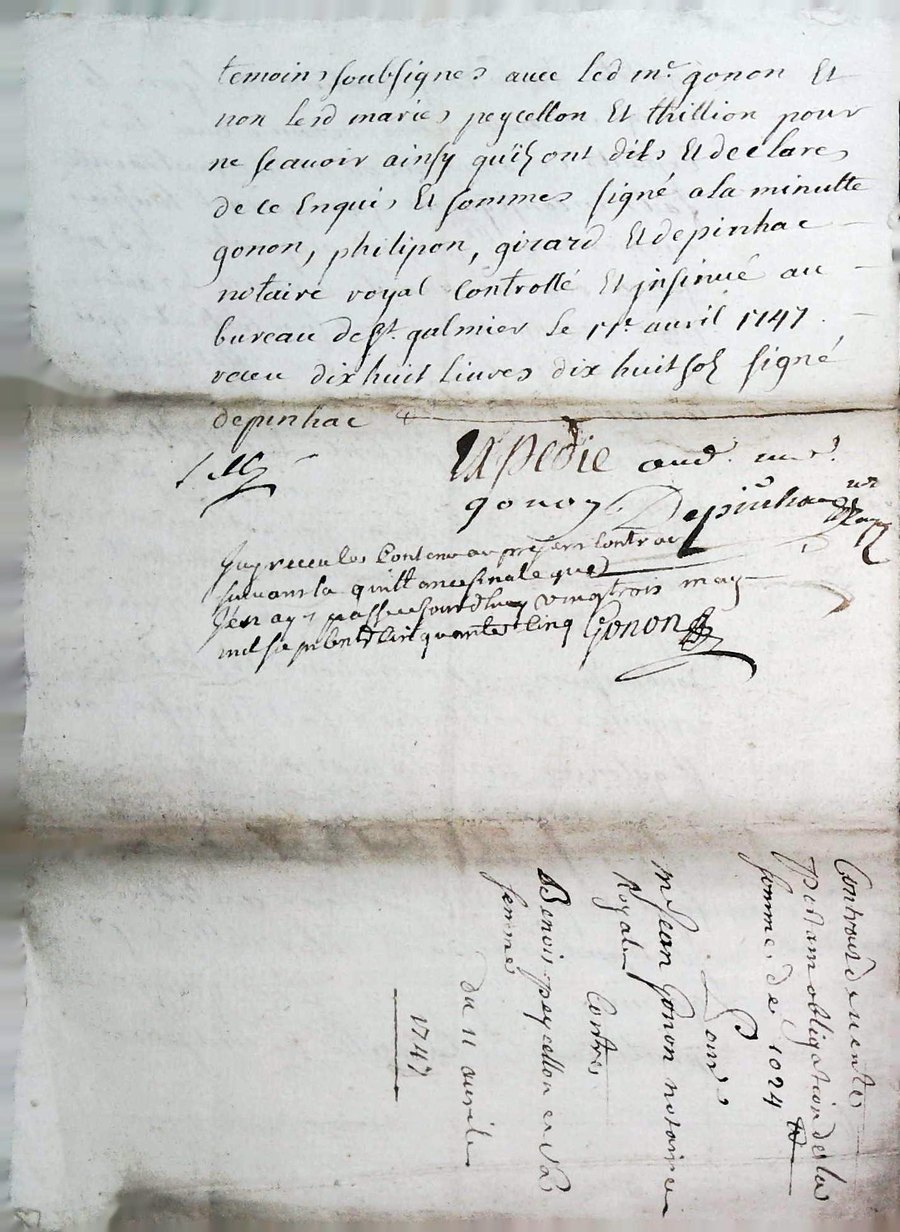 temoins soubsignes avec led me. gonon Et
non lesd maries peycellon Et thillion pour
ne scavoir ainsy quils ont dits Et declares
de ce Enquis Et sommes signé a la minutte
gonon, philipon, girard Et depinhac
notaire royal Controllé Et insinué au
bureau de st. galmier le 11e avril 1747.
receu dix huit livres dix huit sols signé
depinhac
Expedié aud. me.
gonon Depinhac
Jay receu les Contenu au present Contrac
suivant la quittance finale que
J'en ay passee jourdhuy vingt trois may
mil sept cent Cinquante Cinq Gonon
Contract de vente
portant obligation de la
somme de 1024 tt
Pour
me Jean Gonon notaire
Royal
Contre
Benoit peycellon et Sa
femme
du 11 avril
1747